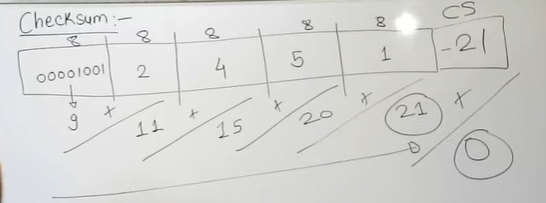 Checksum:- CS
8 8 8 8 8
00001001 2 4 5 1 -21
9 + 11 + 15 + 20 + 21 +
0